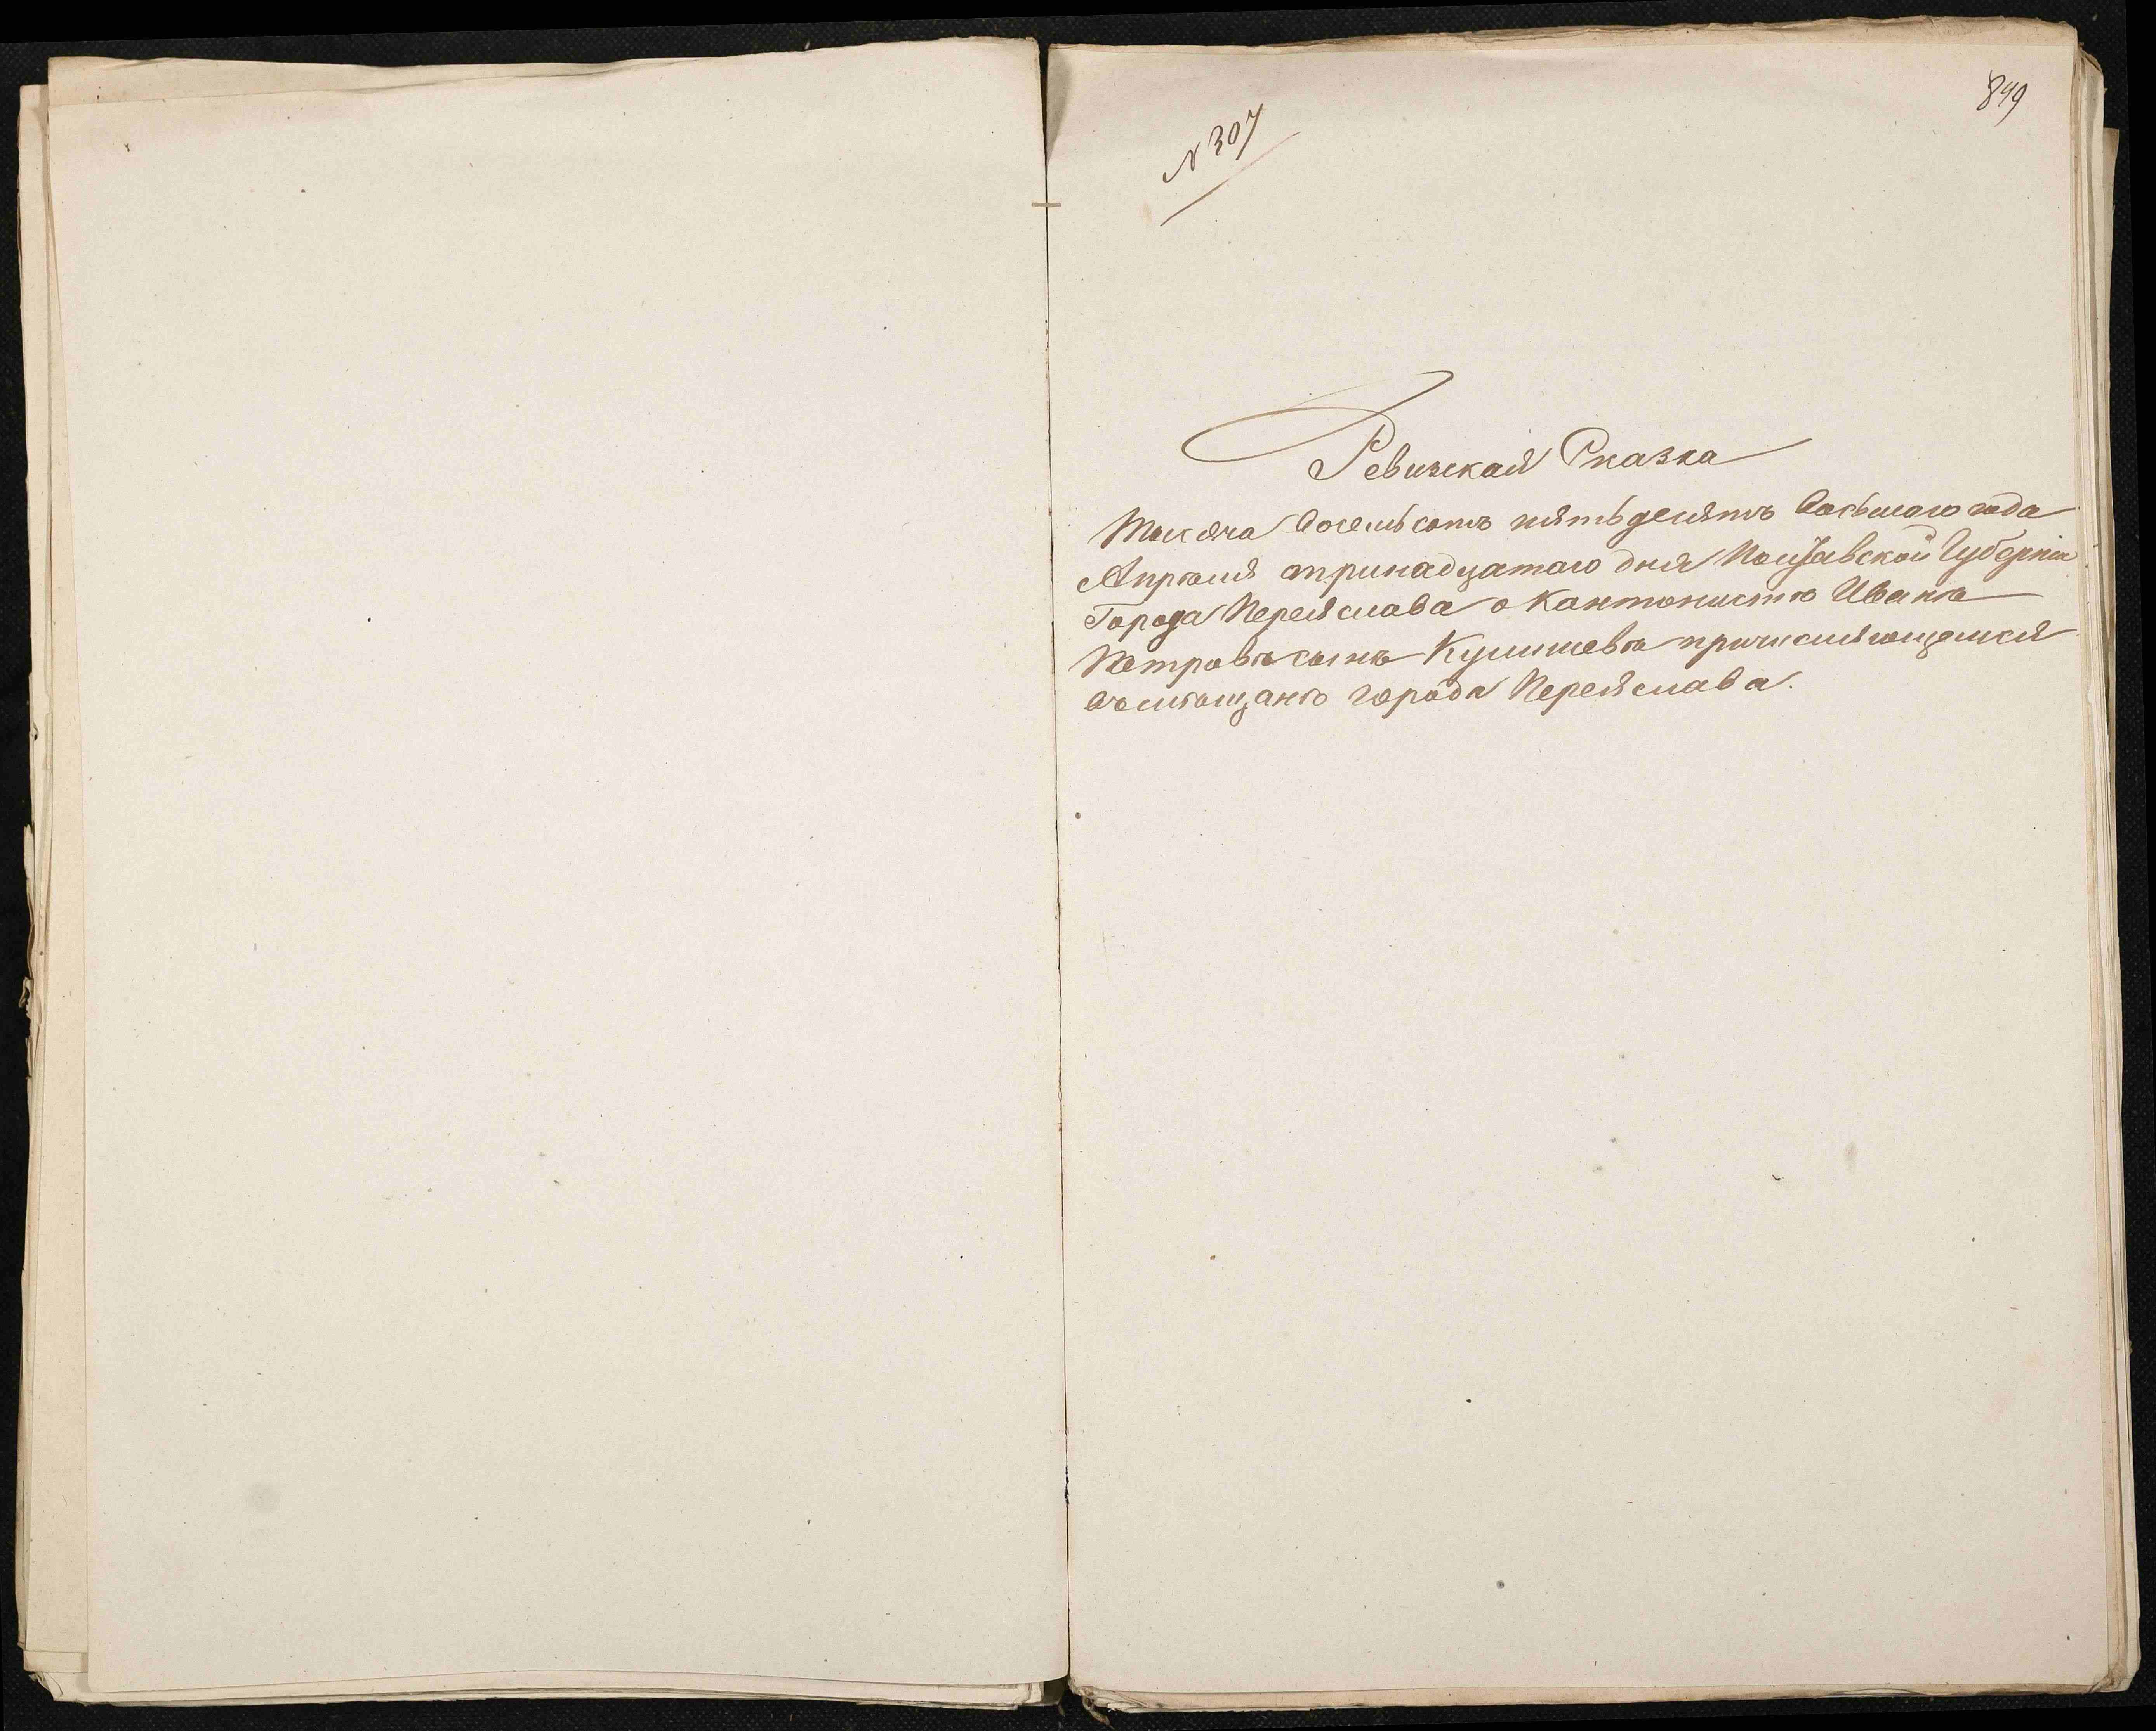 849
N 307
Ревизская Сказка
Тысяча Восемьсотъ пятьдесятъ Восьмаго года
Апрѣля тринадцатаго дня Полтавской Губерніи
Города Переяслава о Кантонистѣ Иванѣ
Петровѣ сынѣ Кулишевѣ причисляющемся
въ мѣщанѣ города Переяслава.